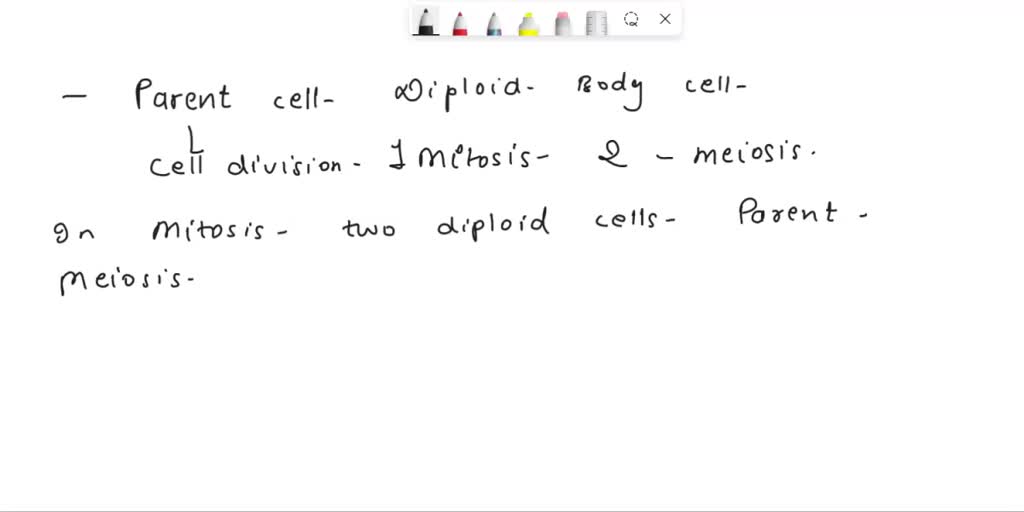 - Parent cell- Diploid- Body cell-
cell division- 1 mitosis- 2 - meiosis.
In mitosis- two diploid cells- Parent-
Meiosis-